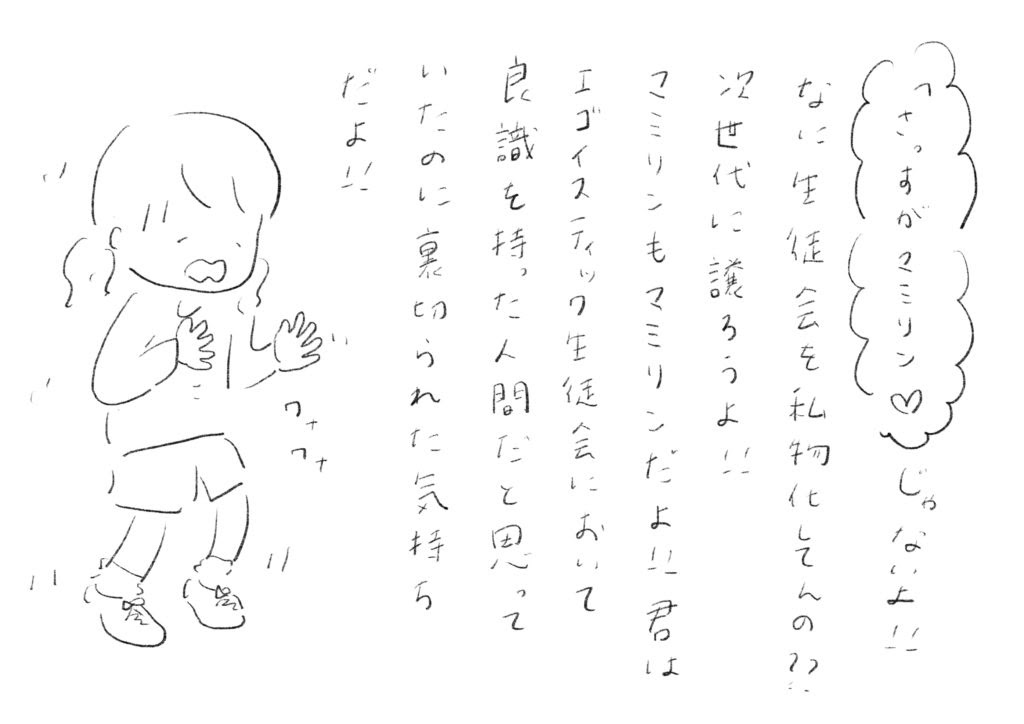 「さっすがマミリン♡じゃないよ!!
なに生徒会を私物化してんの??
次世代に譲ろうよ!!
マミリンもマミリンだよ!!君は
エゴイスティック生徒会において
良識を持った人間だと思って
いたのに裏切られた気持ち
だよ!!
ワナ
ワナ